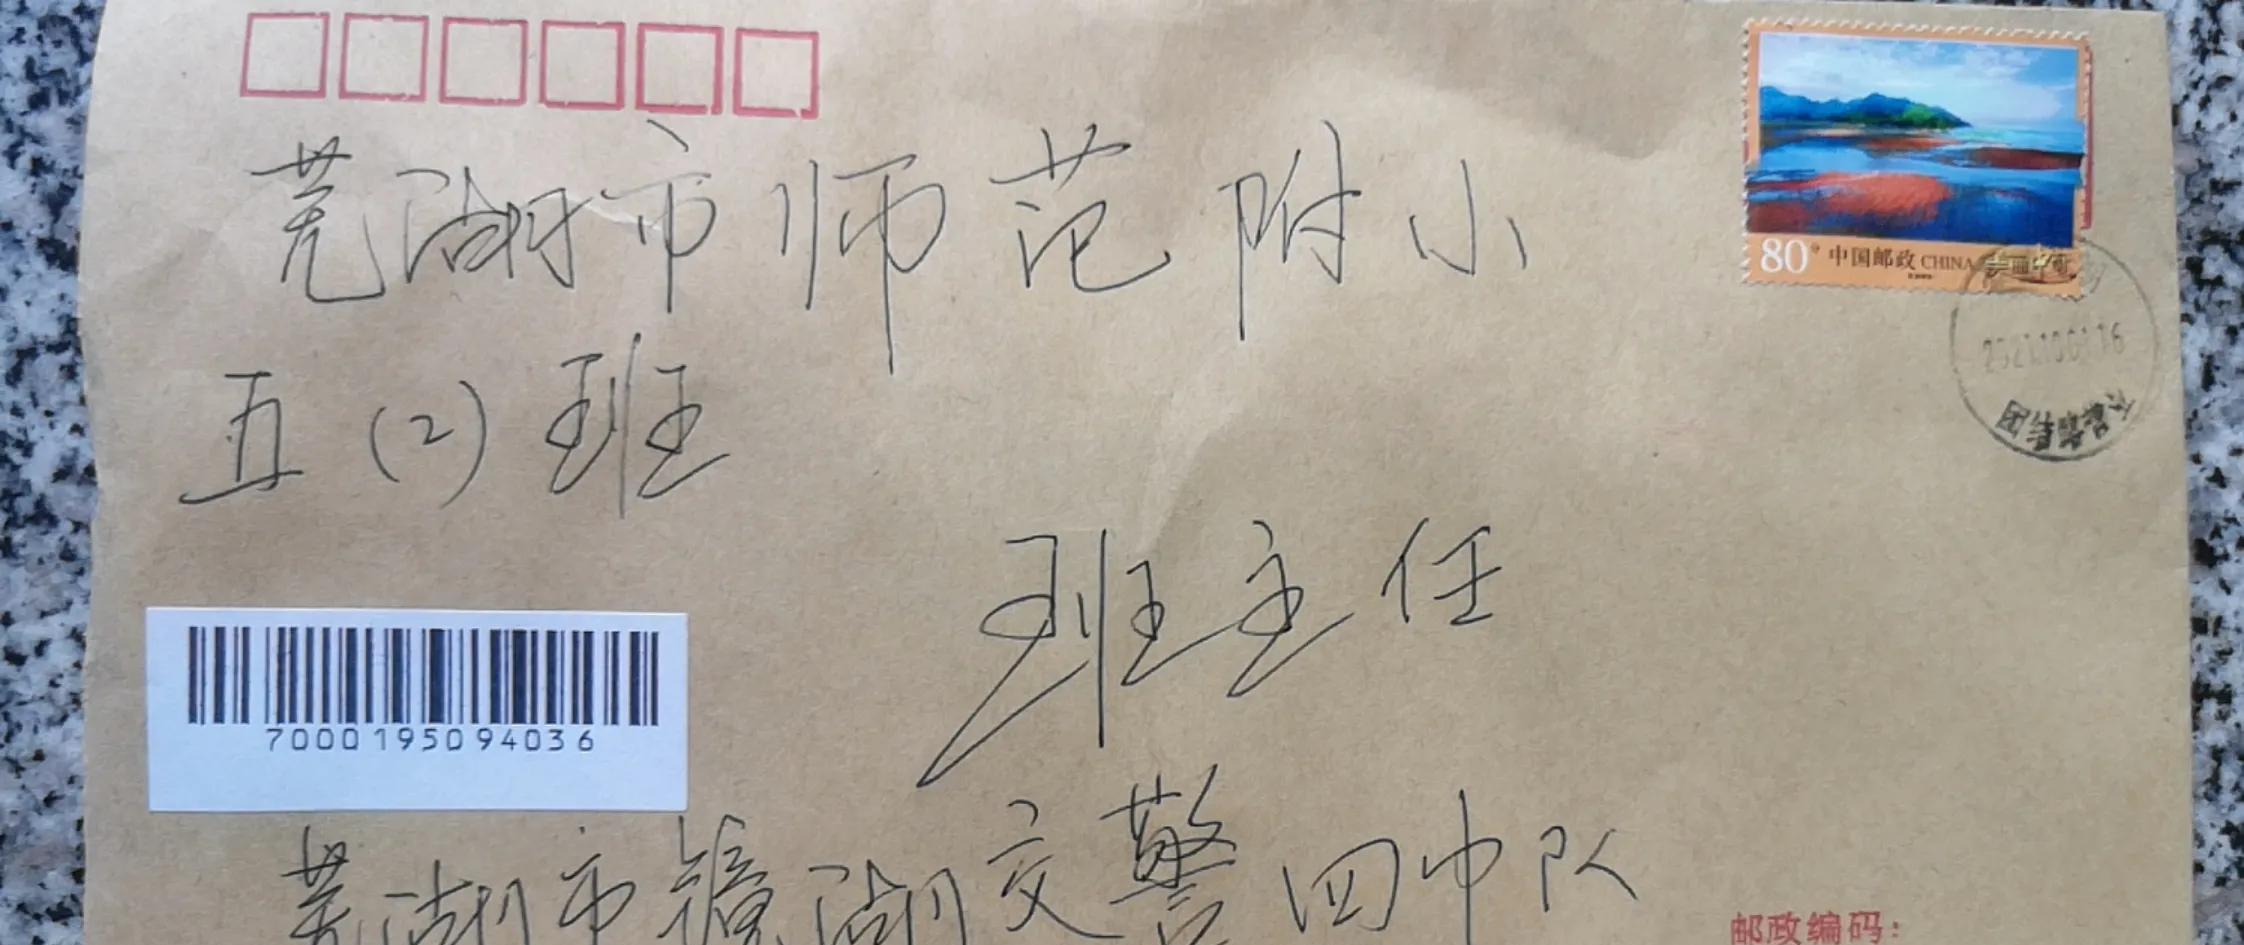 芜湖市师范附小
80分 中国邮政 CHINA
2021.10.01.16
五(2)班
班主任
70001950 94036
芜湖市镜湖交警四中队
邮政编码: